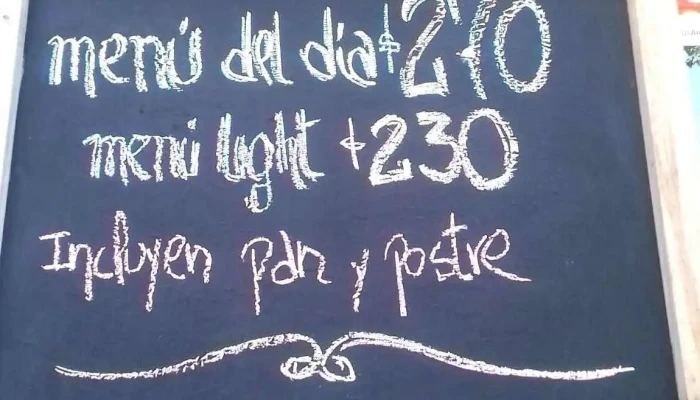 menú del día $270
menú light $230
Incluyen pan y postre